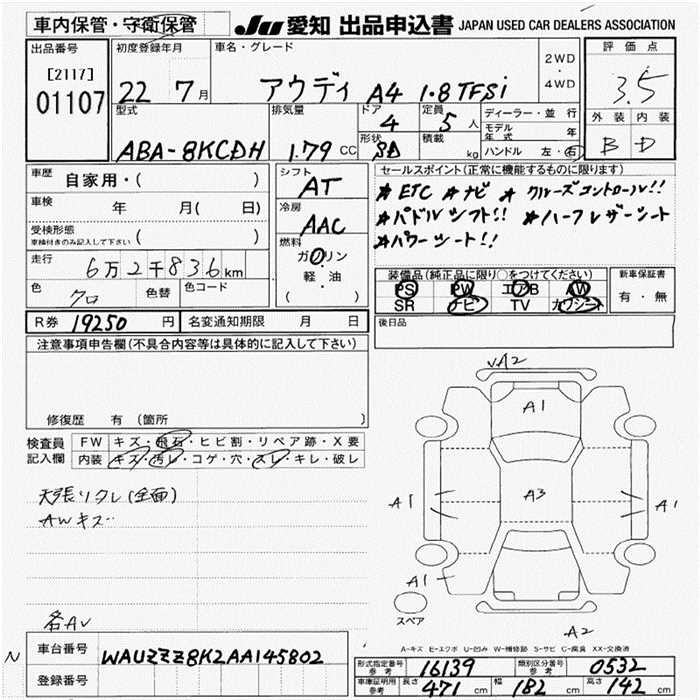 車内保管・守衛保管
JU 愛知 出品申込書 JAPAN USED CAR DEALERS ASSOCIATION
出品番号
[2117]
01107
初度登録年月
22 7月
車名・グレード
アウディ A4 1.8 TFSi
2WD
・
4WD
評価点
3.5
外装 内装
B D
型式
ABA-8KCDH
排気量
1.79 CC
ドア
4
形状
SD
定員
5人
積載
kg
ディーラー・並行
モデル年式 年
ハンドル 左・右
車歴
自家用・( )
車検
年 月( 日)
受検形態
車検付きのみ記入して下さい ( )
走行
6万2千836km
色
クロ
色替
色コード
シフト
AT
冷房
AAC
燃料
ガソリン
軽・油
( )
セールスポイント(正常に機能するものに限り)
★ETC ★ナビ ★クルーズコントロール!!
★パドルシフト!! ★ハーフレザーシート
★パワーシート!!
装備品(純正品に限り○をつけてください)
PS PW エアB AW
SR ナビ TV カワシート
新車保証書
有・無
後日品
R券 19250円
名変通知期限 月 日
注意事項申告欄(不具合内容等は具体的に記入して下さい)
修復歴 有 (箇所 )
検査員
記入欄
FW キズ・飛石・ヒビ割・リペア跡・X要
内装 キズ・汚レ・コゲ・穴・スレ・キレ・破レ
天張りタレ(全面)
AWキズ
各AV
VA2
A1
A1
A3
A1
A1
スペア
A2
A-キズ E-エクボ U-凹み W-補修跡 S-サビ C-腐食 XX-交換済
N
車台番号
WAUZZZ8K2AA145802
登録番号
形式指定番号
参考
16139
類別区分番号
参考
0532
車庫証明用
参考
長さ 471 cm
幅 182 cm
高さ 142 cm